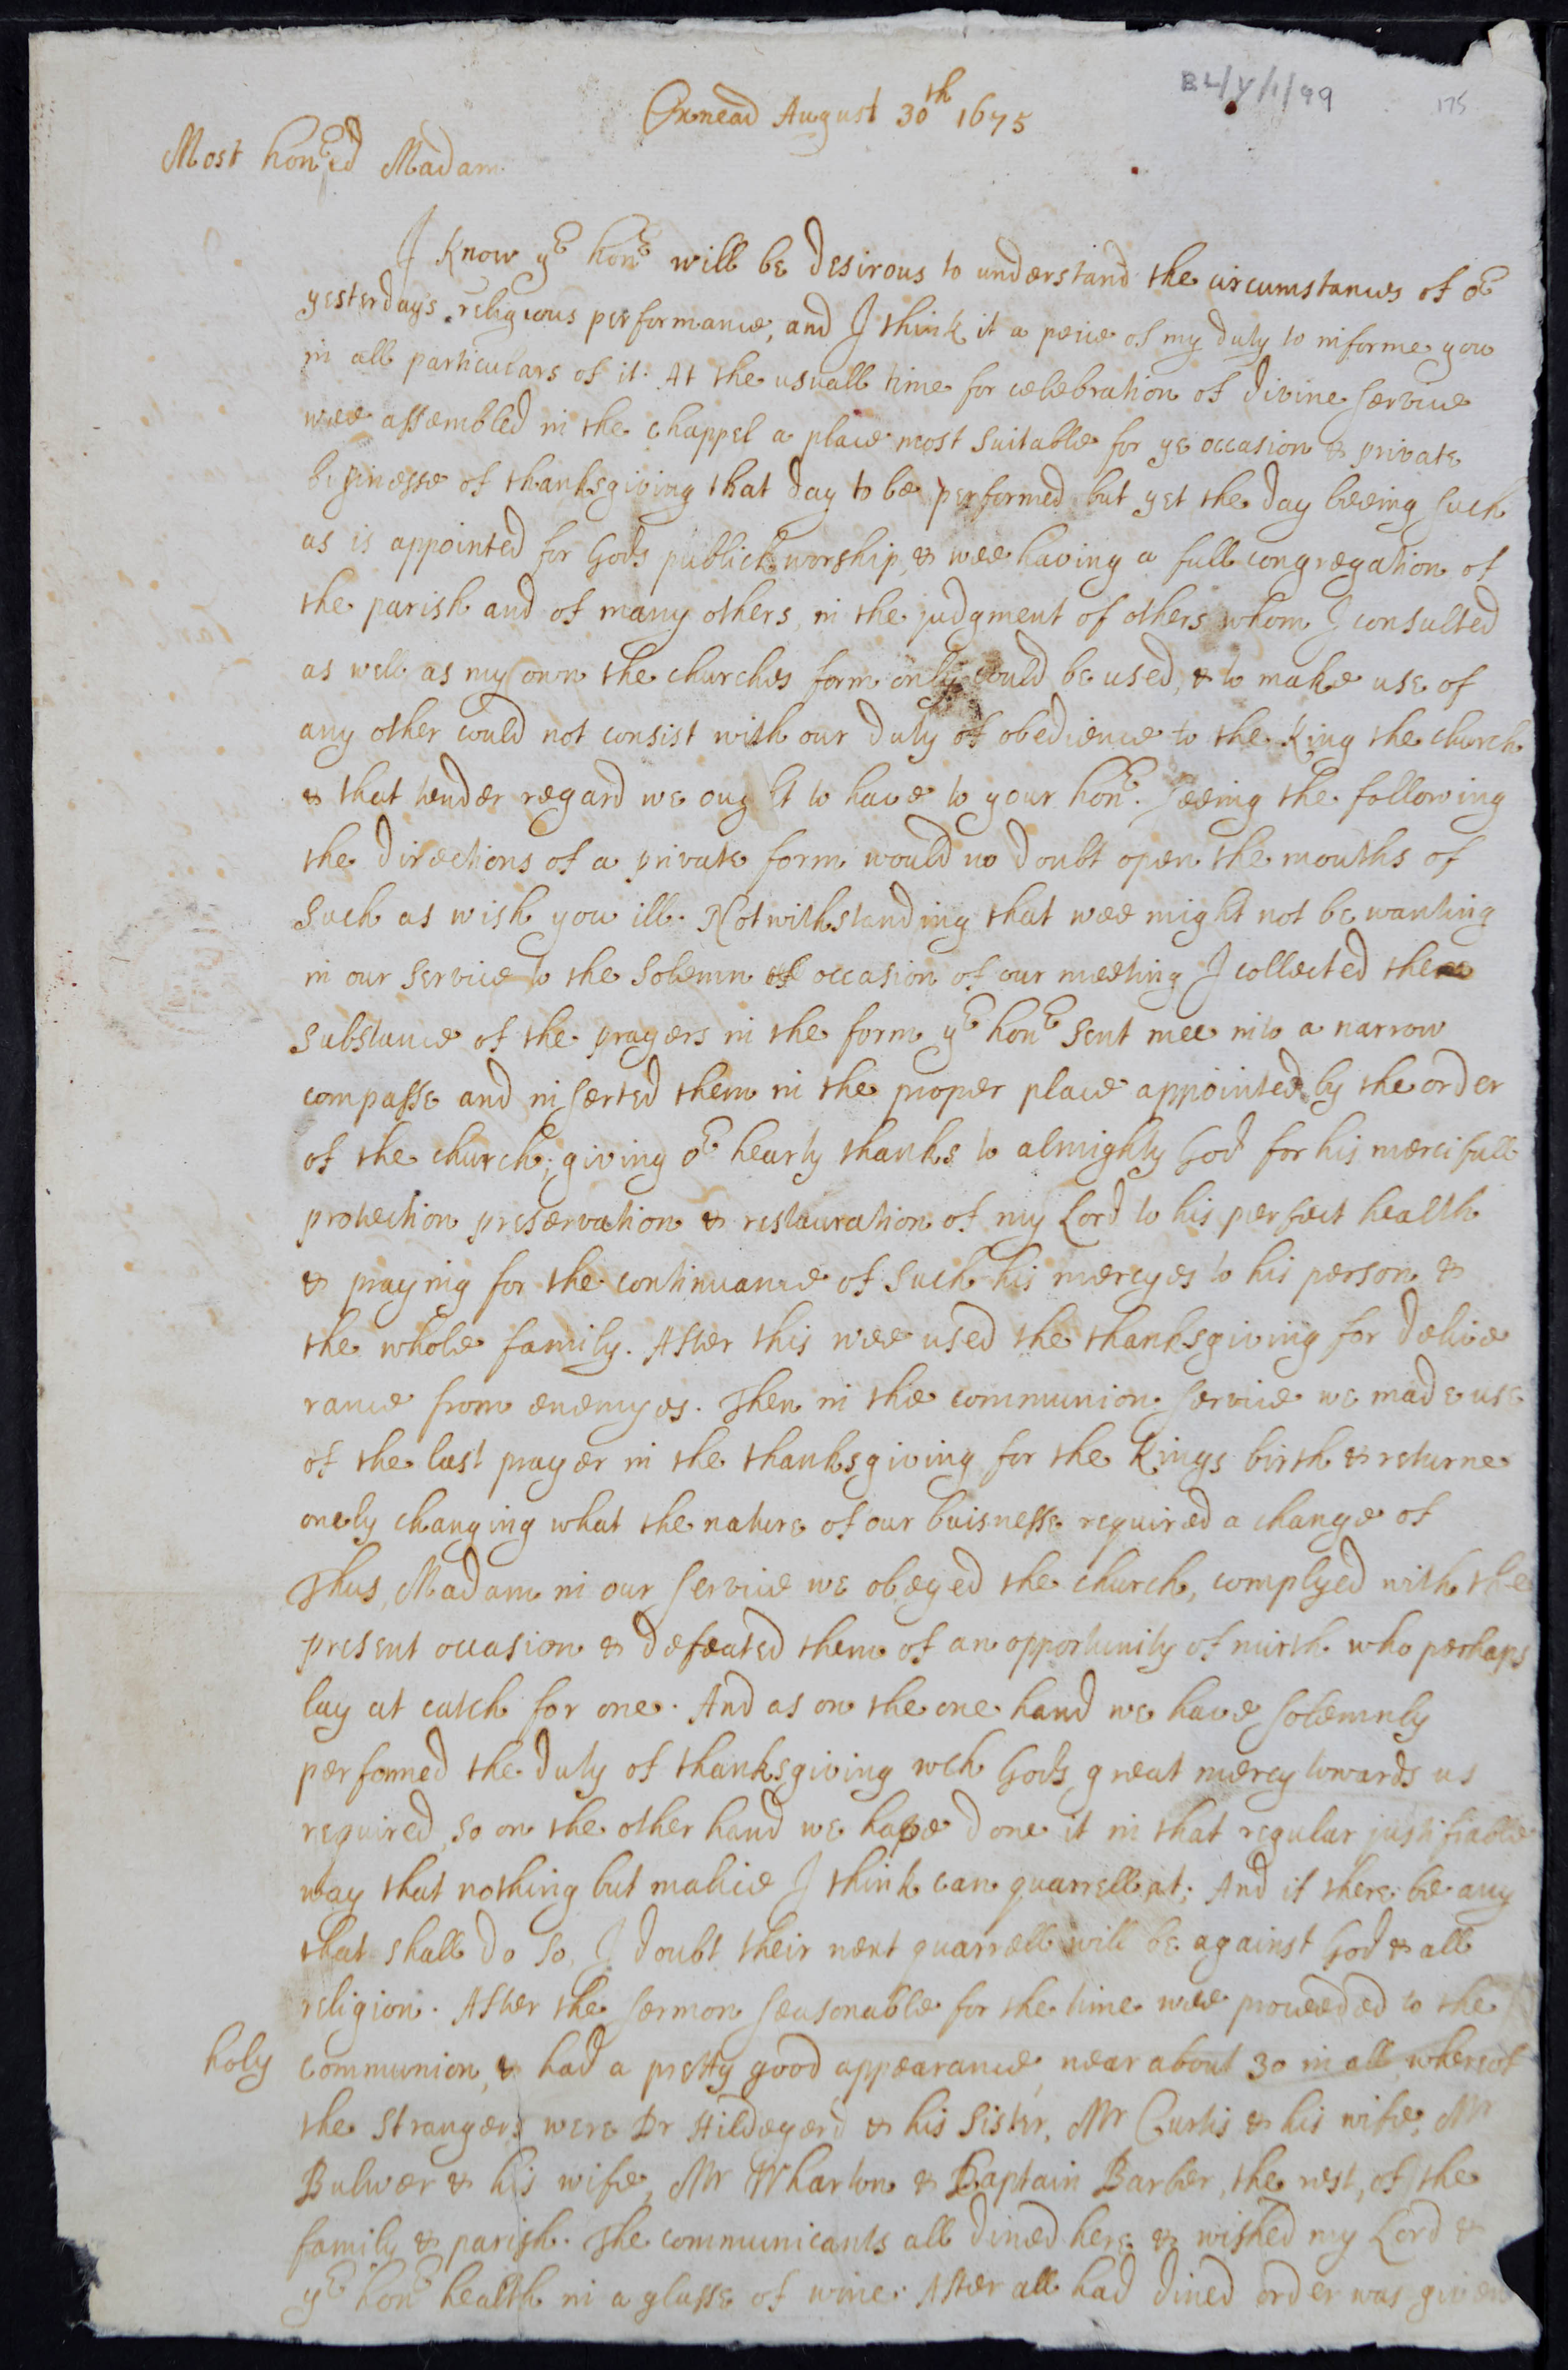 BL/Y/1/99
175
Oxnead August 30th 1675
Most honrd Madam
I know yr honr will be desirous to understand the circumstances of or
yesterdays religious performance, and I think it a peice of my duty to informe you
in all particulars of it. At the usuall time for celebration of divine service
wee assembled in the chappel a place most suitable for ye occasion & private
businesse of thanksgiving that day to be performed but yet the day beeing such
as is appointed for Gods publick worship, & wee having a full congregation of
the parish and of many others, in the judgment of others whom I consulted
as well as my own the churches form only could be used, & to make use of
any other could not consist with our duty of obedience to the King the church
& that tender regard we ought to have to your honr. Seeing the following
the directions of a private form would no doubt open the mouths of
such as wish you ill. Notwithstanding that wee might not be wanting
in our service to the solemn occasion of our meeting I collected the
substance of the prayers in the form yr honr sent mee into a narrow
compasse and inserted them in the proper place appointed by the order
of the church; giving or hearty thanks to almighty God for his mercifull
protection preservation & restauration of my Lord to his perfect health
& praying for the continuance of such his mercyes to his person &
the whole family. After this wee used the thanksgiving for delive
rance from enemyes. Then in the communion service we made use
of the last prayer in the thanksgiving for the Kings birth & returne
onely changing what the nature of our buisnesse required a change of
Thus, Madam in our service we obeyed the church, complyed with the
present occasion & defeated them of an opportunity of mirth who perhaps
lay at catch for one. And as on the one hand we have solemnly
performed the duty of thanksgiving wch Gods great mercy towards us
required, so on the other hand we have done it in that regular justifiable
way that nothing but malice I think can quarrell at; And if there be any
that shall do so, I doubt their next quarrell will be against God & all
religion. After the sermon seasonable for the time wee proceeded to the
holy communion, & had a pretty good appearance, near about 30 in all whereof
the strangers were Dr Hildeyerd & his sister, Mr Curtis & his wife, Mr
Bulwer & his wife, Mr Wharton & Captain Barber, the rest, of the
family & parish. The communicants all dined here & wished my Lord &
yr honr health in a glasse of wine. After all had dined order was given